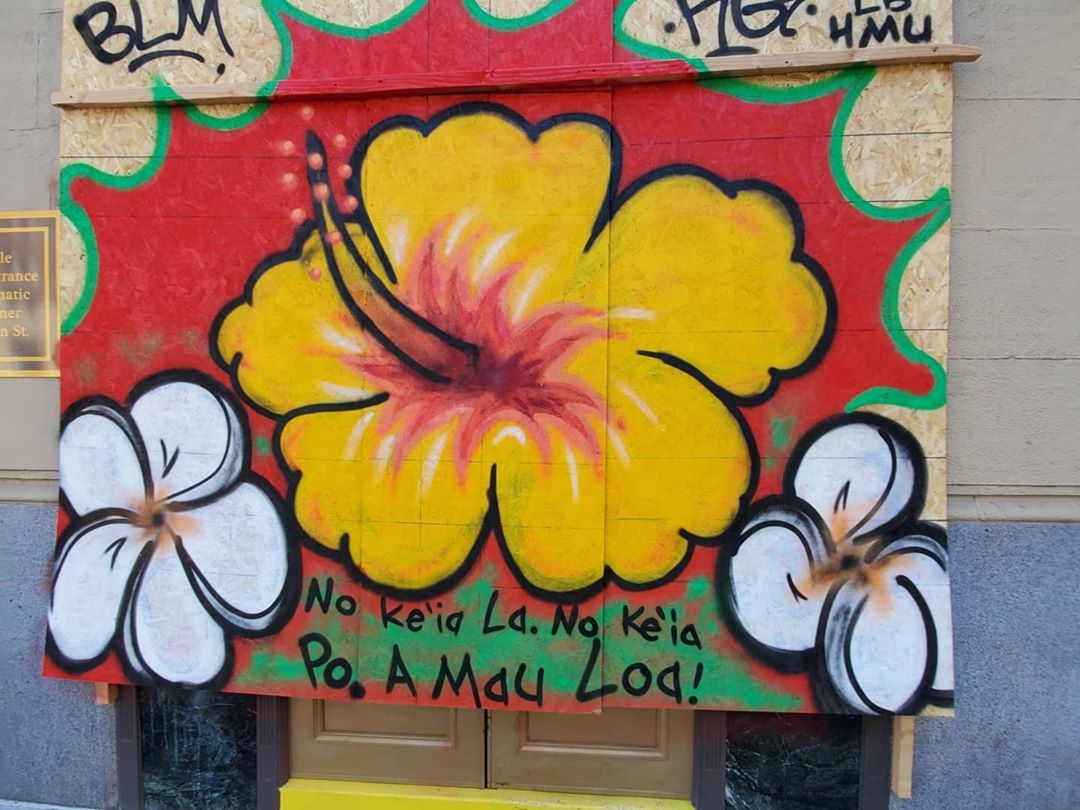 BLM
LB
HMU
le
trance
matic
ner
n St.
No Ke'ia La. No Ke'ia
Po. A Mau Loa!